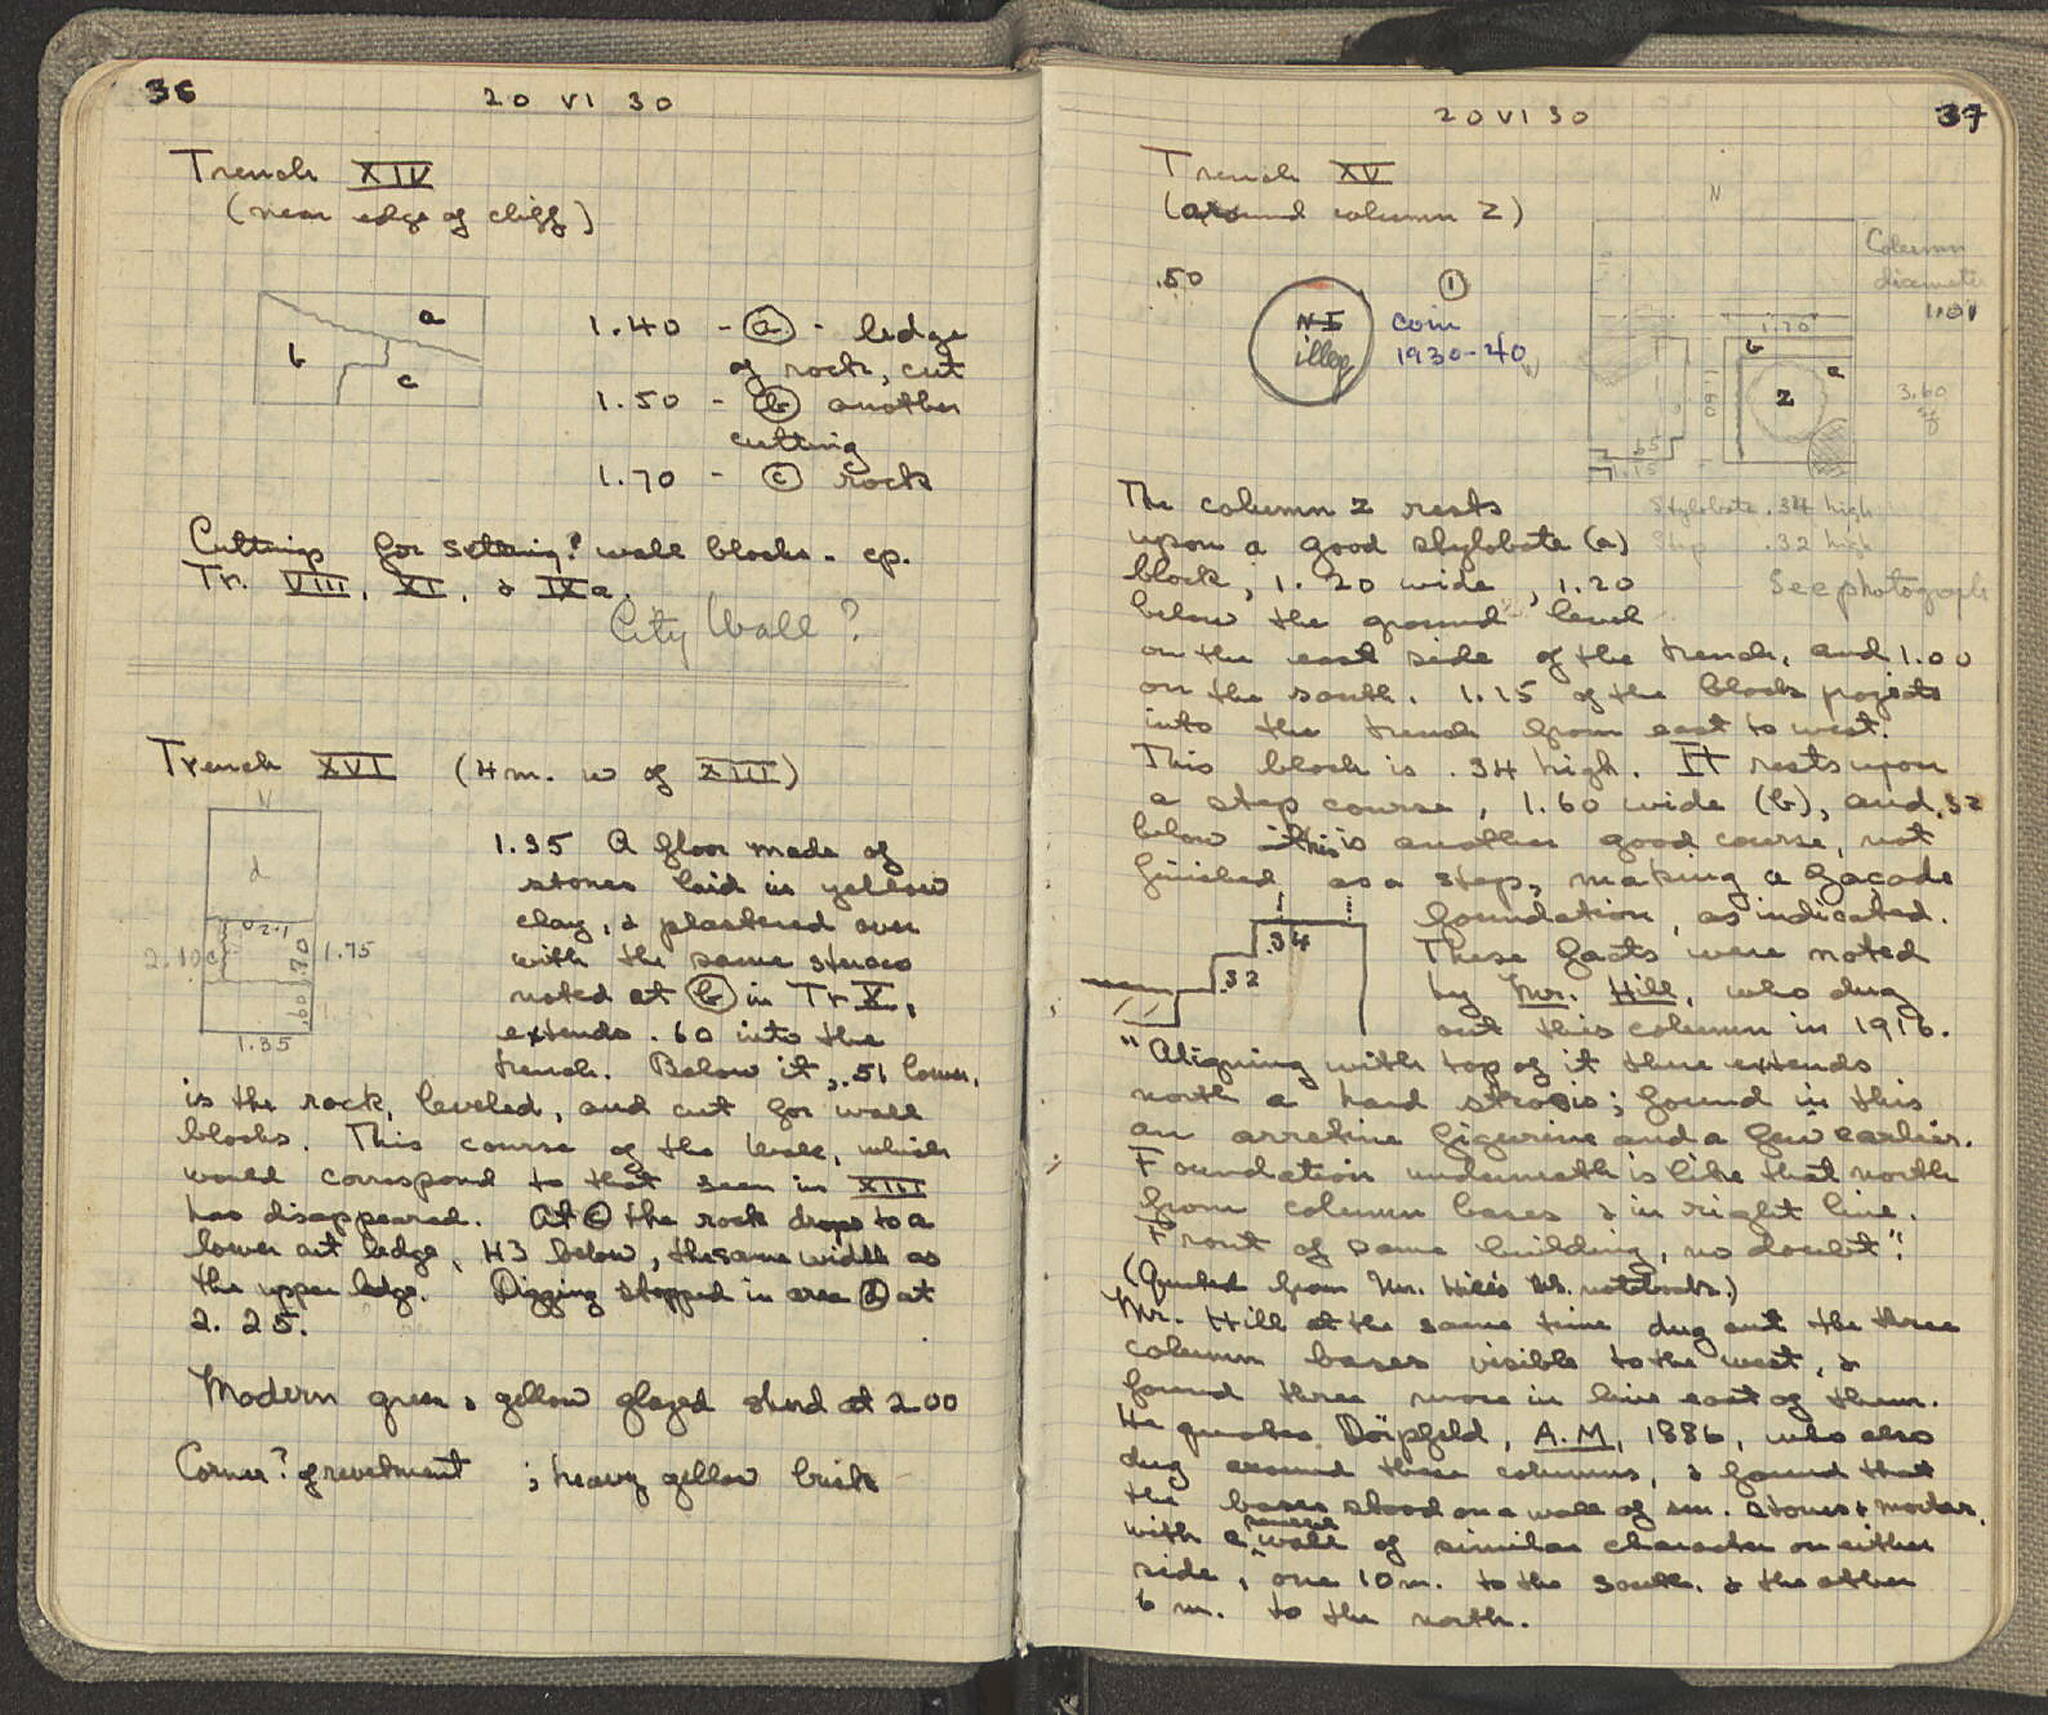 36
20 VI 30
Trench XIV
(near edge of cliff)
a
b
c
1.40 - (a) - ledge
of rock, cut
1.50 - (b) another
cutting
1.70 - (c) rock
Cuttings for setting? wall blocks - cp.
Tr. VIII, XI, & IXa.
City Wall?
Trench XVI (4m. w of XIII)
N
d
1.20
2.10
c
.70
1.75
.60
1.35
1.35 A floor made of
stones laid in yellow
clay, & plastered over
with the same stucco
noted at (b) in Tr X,
extends .60 into the
trench. Below it, .51 lower,
is the rock, leveled, and cut for wall
blocks. This course of the wall, which
would correspond to that seen in XIII
has disappeared. At (c) the rock drops to a
lower cut ledge, .43 below, the same width as
the upper ledge. Digging stopped in area (d) at
2.25.
Modern green & yellow glazed sherd at 2.00
Corner? of revetment ; heavy yellow brick
37
20 VI 30
Trench XV
(around column Z)
.50
N I
illeg
(1)
coin
1930-40
N
Column
diameter
1.01
1.20
b
a
Z
1.60
3.60
.65
1.15
Stylobate .34 high
Step .32 high
See photograph
The column Z rests
upon a good stylobate (a)
block, 1.20 wide, 1.20
below the ground level
on the east side of the trench, and 1.00
on the south. 1.15 of the block projects
into the trench from east to west.
This block is .34 high. It rests upon
a step course, 1.60 wide (b), and .32
below this is another good course, not
finished as a step, making a façade
foundation, as indicated.
.34
.32
These facts were noted
by Mr. Hill, who dug
out this column in 1916.
"Aligning with top of it there extends
north a hard strosis; found in this
an arretine figurine and a few earlier.
Foundation underneath is like that north
from column bases & in right line.
Front of same building, no doubt".
(Quoted from Mr. Hill's Ms. notebooks.)
Mr. Hill at the same time dug out the three
column bases visible to the west, &
found three more in line east of them.
He quotes Dörpfeld, A.M, 1886, who also
dug around these columns, & found that
the bases stood on a wall of sm. stones & mortar,
with a wall of similar character on either
side, one 10 m. to the south, & the other
6 m. to the north.